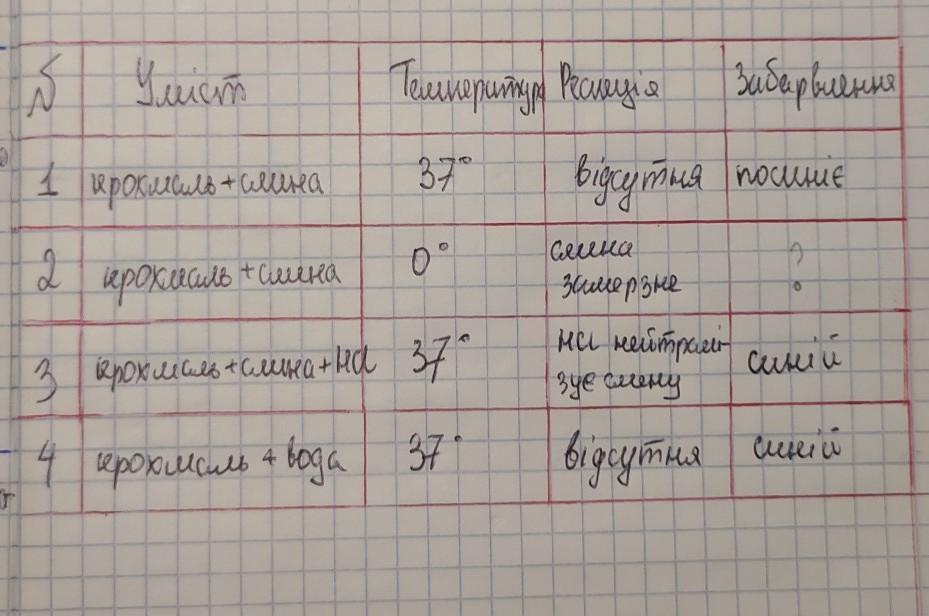 № Уміст Температур Реакція Забарвлення
1 крохмаль+слина 37° відсутня посиніє
2 крохмаль+слина 0° слина замерзне ?
3 крохмаль+слина+HCl 37° HCl нейтралі-
зує слину синій
4 крохмаль + вода 37° відсутня синій